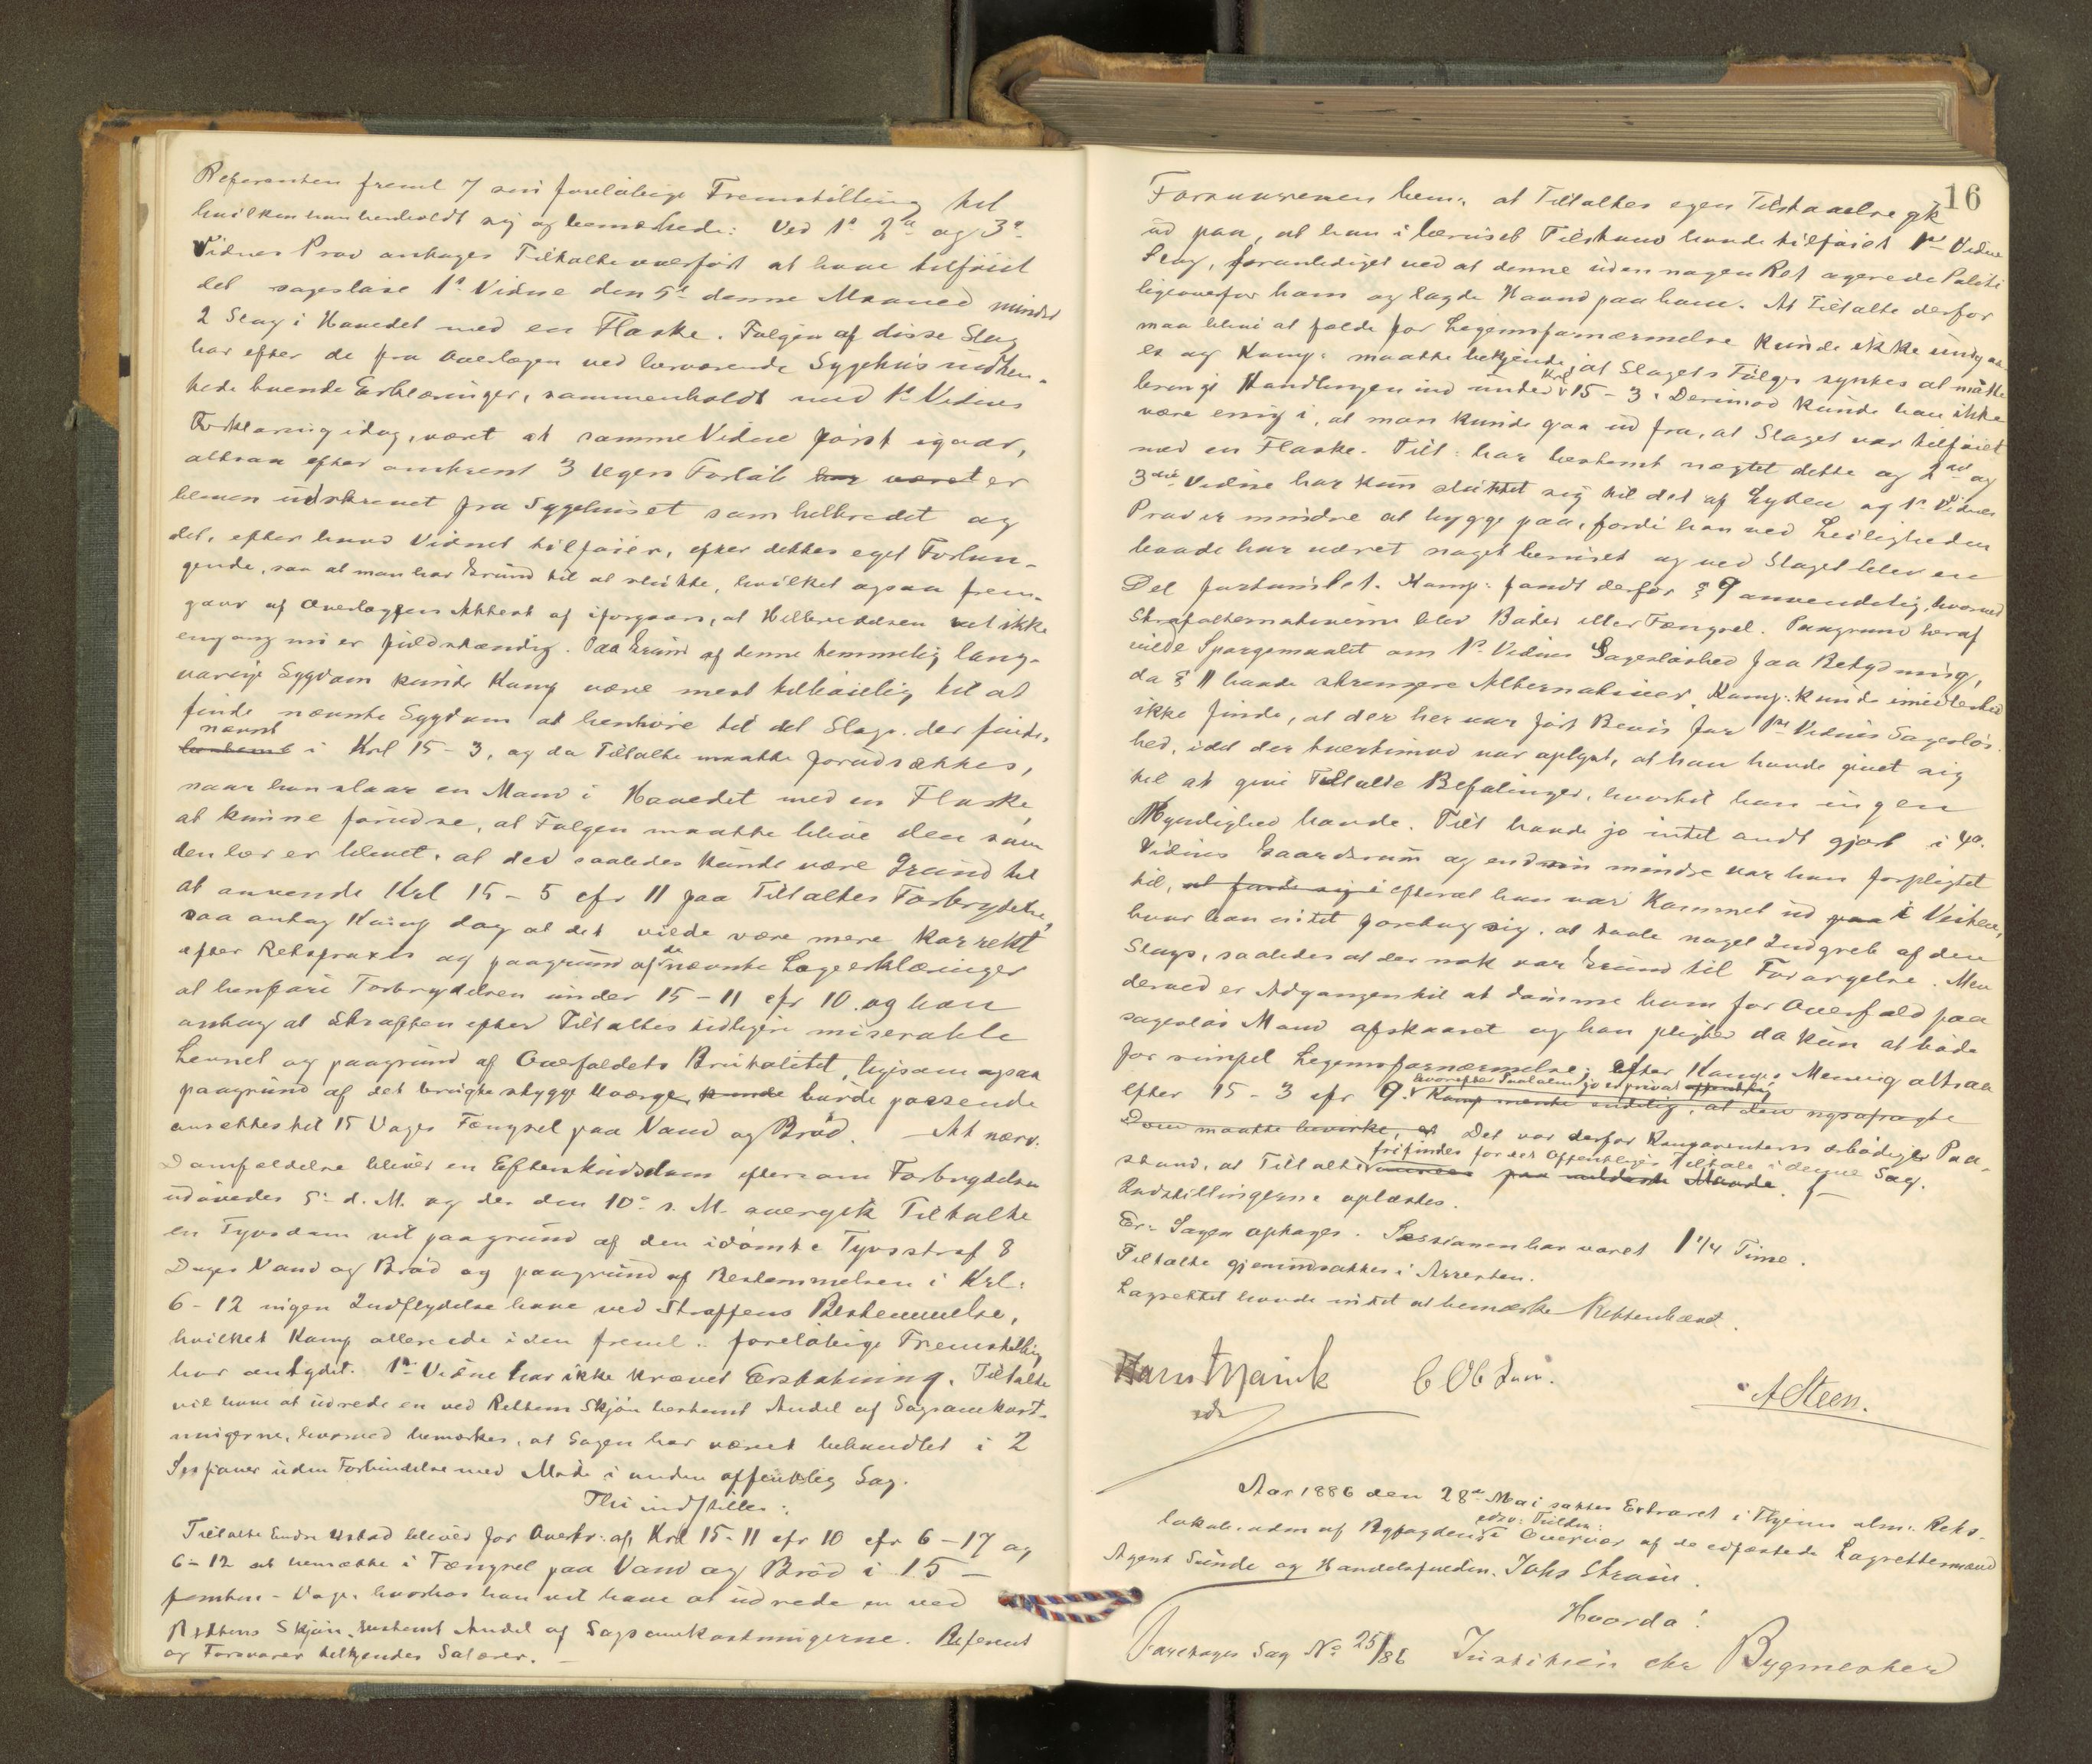 Referenten freml 7 sin foreløbige Fremstilling til
hvilken han henholdt sig og bemærkede: Ved 1ste 2det og 3die
Vidnes Prov antages Tiltalte overført at have tilføiet
det sagesløse 1ste Vidne den 5te denne Maaned mindst
2 Slag i Hovedet med en Flaske. Følgen af disse Slag
har efter de fra Overlægen ved herværende Sygehus indhen-
tede Erklæringer, sammenholdt med 1ste Vidnes
Forklaring idag, været at samme Vidne først igaar,
altsaa efter omkrent 3 Ugers Forløb har været er
bleven udskrevet fra Sygehuset som helbredet og
det, efter hvad Vidnet tilføier, efter dettes eget Forlan-
gende, saa at man har Grund til at slutte, hvilket ogsaa frem-
gaar af Overlægens Attest af iforgaars, at Helbredelsen vel ikke
engang nu er fuldstændig. Paa Grund af denne temmelig lang-
varige Sygdom kunde Komp være mest tilbøielig til at
finde nævnte Sygdom at henhøre til det Slags, der findes
nævnt
bestemt i Krl 15-3, og da Tiltalte maatte forudsættes,
naar han slaar en Mand i Hovedet med en Flaske,
at kunne forudse, at Følgen maatte blive den som
den her er blevet, at det saaledes kunde være Grund til
at anvende Krl 15-5 cfr 11 paa Tiltaltes Forbrydelse,
saa antog Komp dog at det vilde være mere korrekt
efter Retspraxis og paagrund af de nævnte Lægeerklæringer
at henføre Forbrydelsen under 15-11 cfr 10 og han
antog at Straffen efter Tiltaltes tidligere miserable
Levnet og paagrund af Overfaldets Brutalitet, ligesom ogsaa
paagrund af det brugte stygge Vaaben, kunde burde passende
ansættes til 15 Dages Fængsel paa Vand og Brød. At nærv.
Domfældelse bliver en Efterskudsdom eftersom Forbrydelsen
udøvedes 5te d. M. og der den 10de s. M. overgik Tiltalte
en Tyvsdom vil paagrund af den idømte Tyvsstraf 8
Dages Vand og Brød og paagrund af Bestemmelsen i Krl:
6-12 ingen Indflydelse have ved Straffens Bestemmelse,
hvilket Komp allerede i den freml: foreløbige Fremstilling
har antydet. 1ste Vidne har ikke krævet Erstatning. Tiltalte
vil have at udrede en ved Rettens Skjøn bestemt Andel af Sagsomkost-
ningerne, hvorved bemærkes, at Sagen har været behandlet i 2
Sessioner uden Forbindelse med Møde i anden offentlig Sag.
Thi indstilles:
Tiltalte Endre Ustad bliver for Overtr: af Krl 15-11 cfr 10 cfr 6-17 og
6-12 at hensætte i Fængsel paa Vand og Brød i 15-
femten- Dage, hvorhos han vil have at udrede en ved
Rettens Skjøn bestemt Andel af Sagsomkostningerne. Referent
og Forsvarer tilkjendes Salærer.
16
Forsvareren bem: at Tiltaltes egen Tilstaaelse gik
ud paa, at han i beruset Tilstand havde tilføiet 1ste Vidne
Slag, foranlediget ved at denne uden nogen Ret agerede Politi
ligeoverfor ham og lagde Haand paa ham. At Tiltalte derfor
maa blive at fælde for Legemsfornærmelse kunde ikke undgaaes
og Komp: maatte bekjende, at Slagets Følger syntes at maatte
Krl
bringe Handlingen ind under 15-3. Derimod kunde han ikke
være enig i, at man kunde gaa ud fra, at Slaget var tilføiet
med en Flaske. Tilt: har bestemt nægtet dette og 2det og
3die Vidne har kun sluttet sig til det af Lyden og 1ste Vidnes
Prov er mindre at bygge paa, fordi han ved Leiligheden
baade har været noget beruset og ved Slaget blev en
Del fortumlet. Komp: fandt derfor § 9 anvendelig, hvorved
Strafalternativerne blev Bøder eller Fængsel. Paagrund heraf
vilde Spørgsmaalet om 1ste Vidnes Sagesløshed faa Betydning,
da § 11 havde strengere Alternativer. Komp: kunde imidlertid
ikke finde, at der her var ført Bevis for 1ste Vidnes Sagesløs-
hed, idet der tvertimod var oplyst, at han havde givet sig
til at give Tiltalte Befalinger, hvortil han ingen
Myndighed havde. Tilt havde jo intet andt gjort i 4de
Vidnes Gaardsrum og endnu mindre var han forpligtet
til, at finde sig i efterat han var kommet ud paa i Veiten,
hvor han intet foretog sig, at taale noget Indgreb af den
Slags, saaledes at der nok var Grund til Forargelse. Men
derved er Adgangen til at dømme ham for Overfald paa
sagesløs Mand afskaaret og han pligter da kun at bøde
for simpel Legemsfornærmelse; efter Komps Mening altsaa
hvorefter Paatalen jo er privat offentlig
efter 15-3 cfr 9. Komp mente endelig, at den nysafsagte
Dom maatte bevirke, at Det var derfor Komparentens ærbødige Paa-
frifindes for det Offentliges Tiltale i denne Sag.
stand, at Tiltalte ansees paa mildeste Maade.
Indstillingerne oplæstes.
Er: Sagen optages. Sessionen har varet 1 1/4 Time.
Tiltalte gjenindsattes i Arresten.
Lagrettet havde intet at bemærke Retten hævet.
C Ob Sun.
A Steen.
Aar 1886 den 28de Mai sattes Extraret i Byens alm: Rets-
edsv: Fuldm:
lokale, adm af Byfogdens i Overvær af de edfæstede Lagrettemænd
Agent Sunde og Handelsfuldm. Johs Strøm.
Hvorda!
Foretages Sag No 25/86 Justitien ctr Bygmester